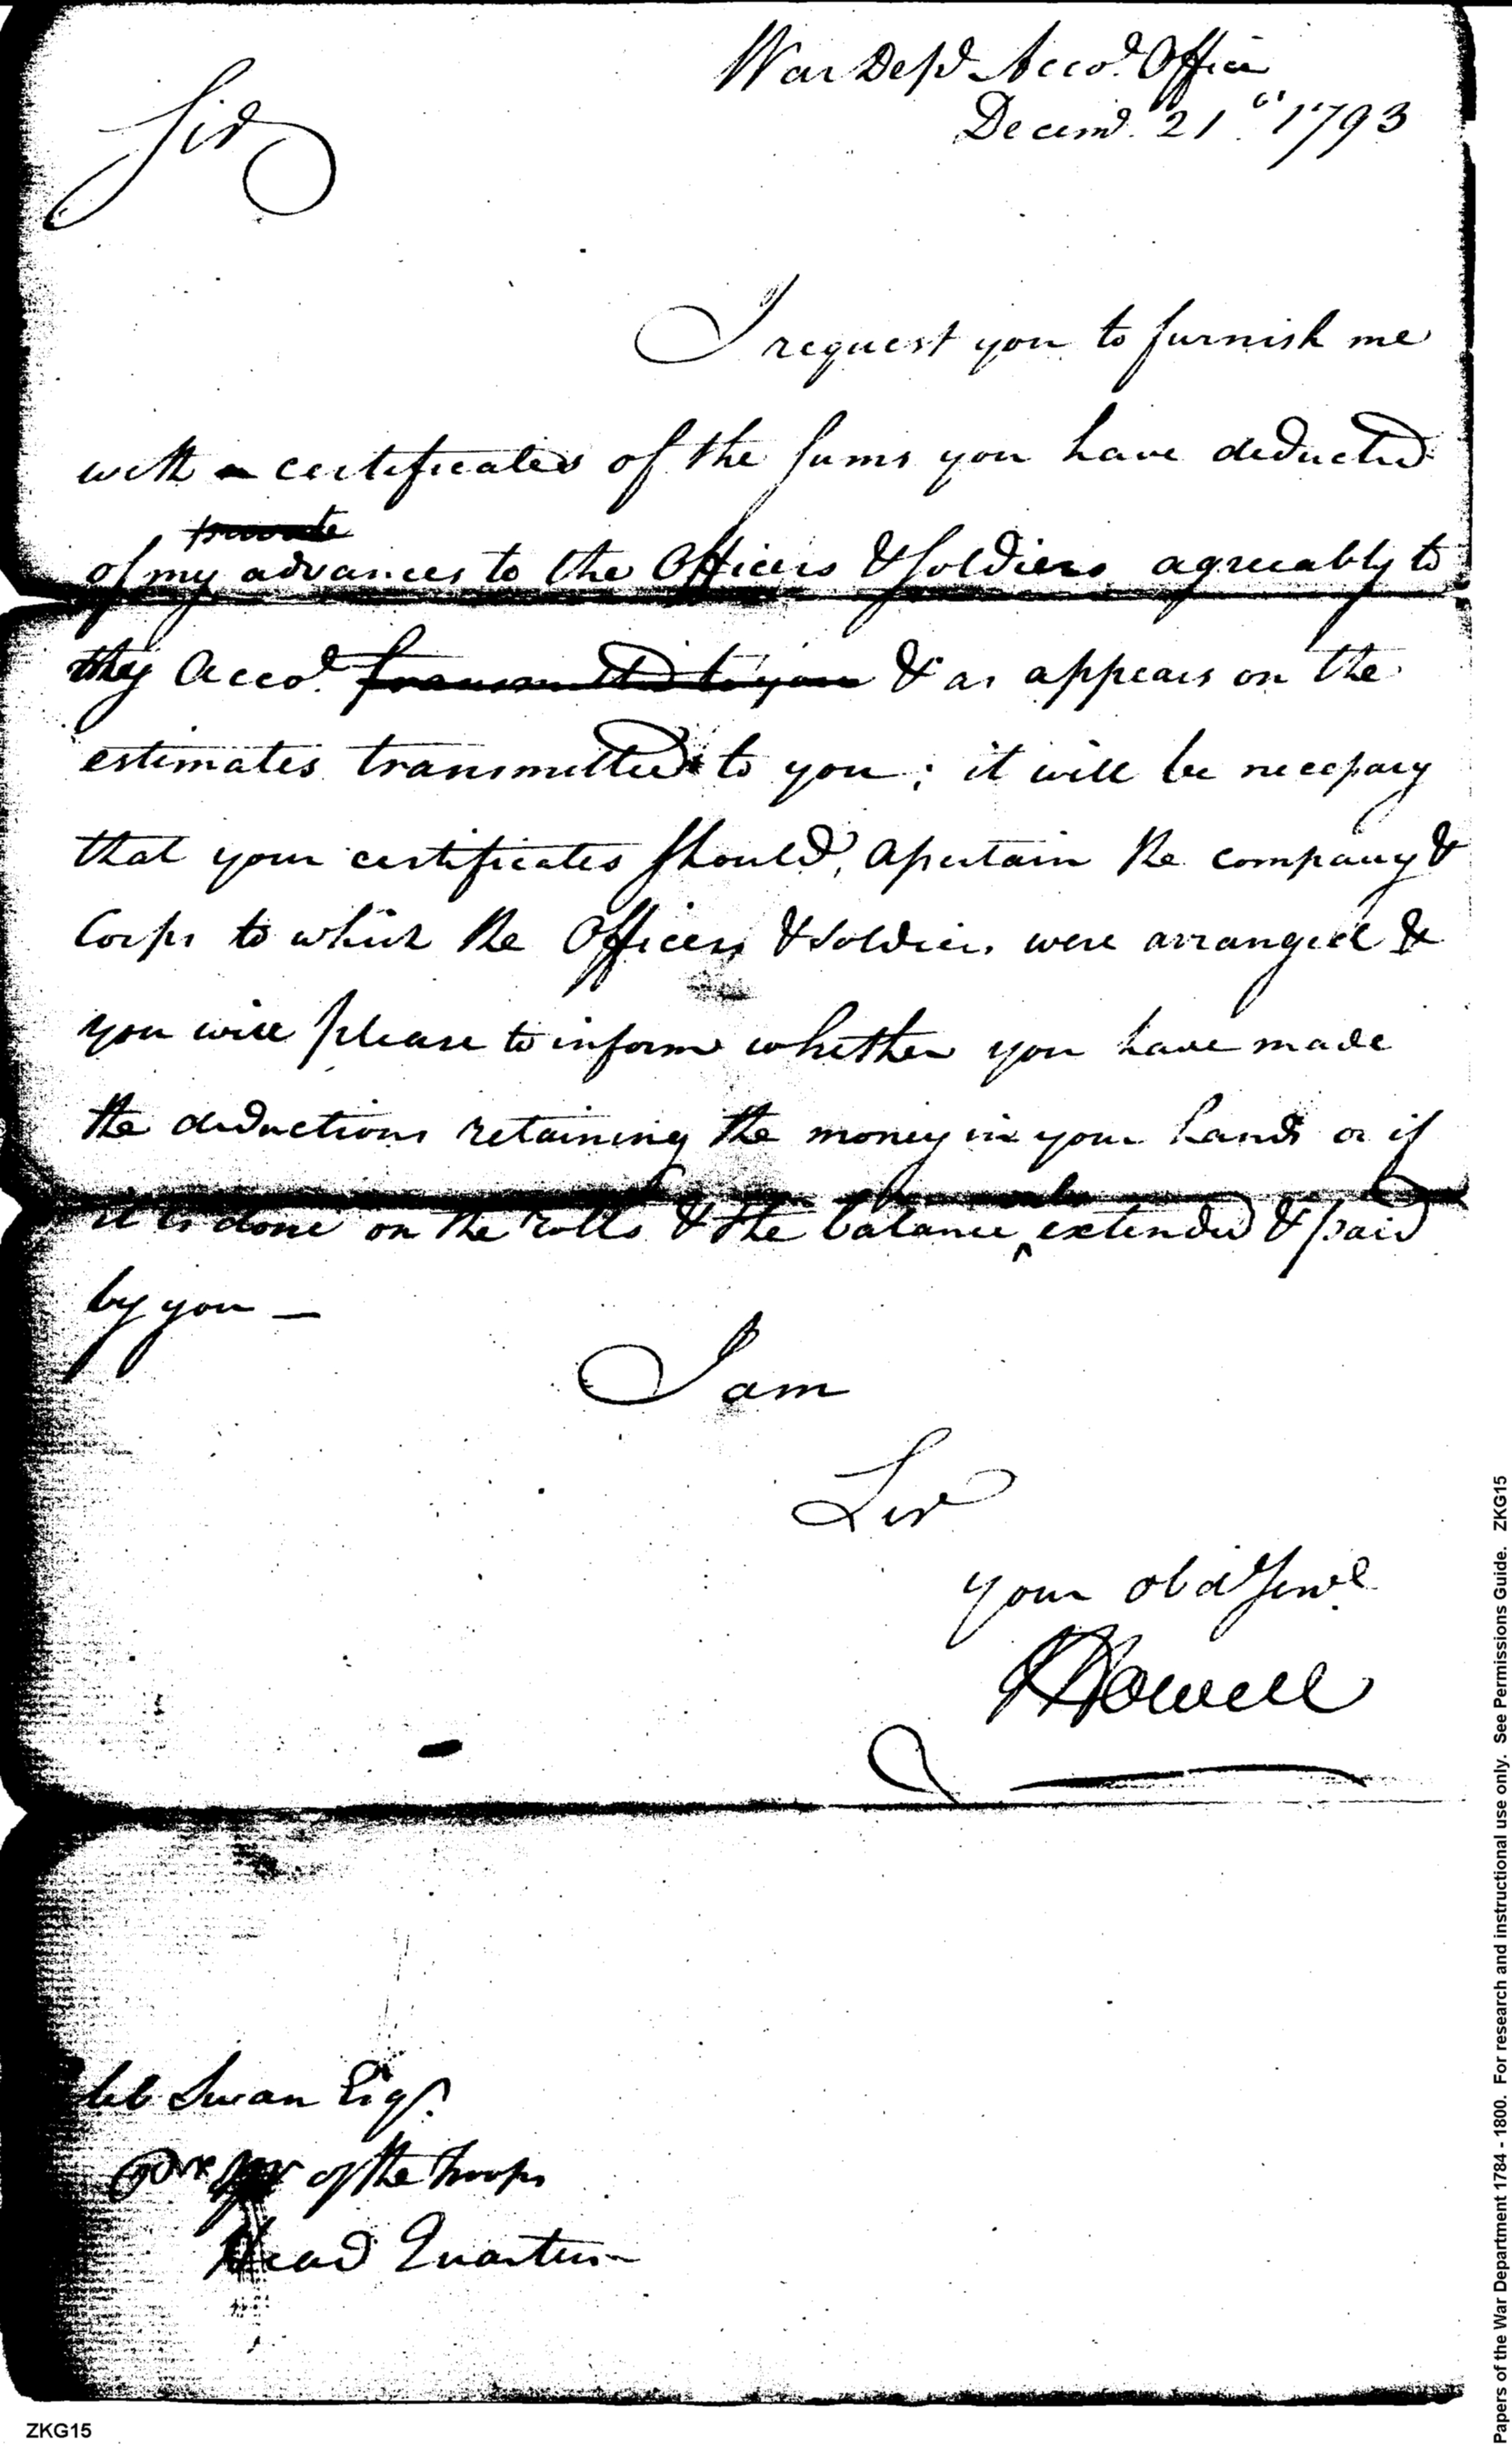 War Dept Accot. Office
Decemr. 21st. 1793
Sir
I request you to furnish me
with a certificates of the sums you have deducted
private
of my advances to the Officers & Soldiers agreeably to
they Accot. transmitted to you & as appears on the
estimates transmitted to you; it will be necessary
that your certificates should, ascertain the company &
Corps to which the Officers & Soldiers were arranged &
you will please to inform whether you have made
the deductions retaining the money in your hands or if
only
it is done on the rolls & the balance ^ extended & paid
by you —
I am
Sir
your obd Servt.
J Howell
leb Swan Esqr.
of the Troops
Head Quarters
ZKG15
Papers of the War Department 1784 - 1800. For research and instructional use only. See Permissions Guide. ZKG15